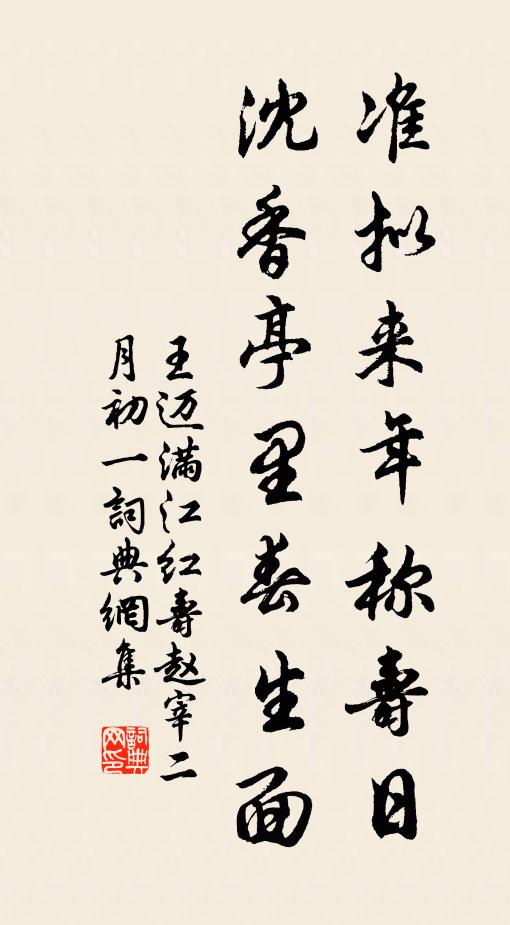 准拟来年称寿日
沈香亭里春生面
王迈满江红寿赵宰二
月初一詞典網集
詞典网印